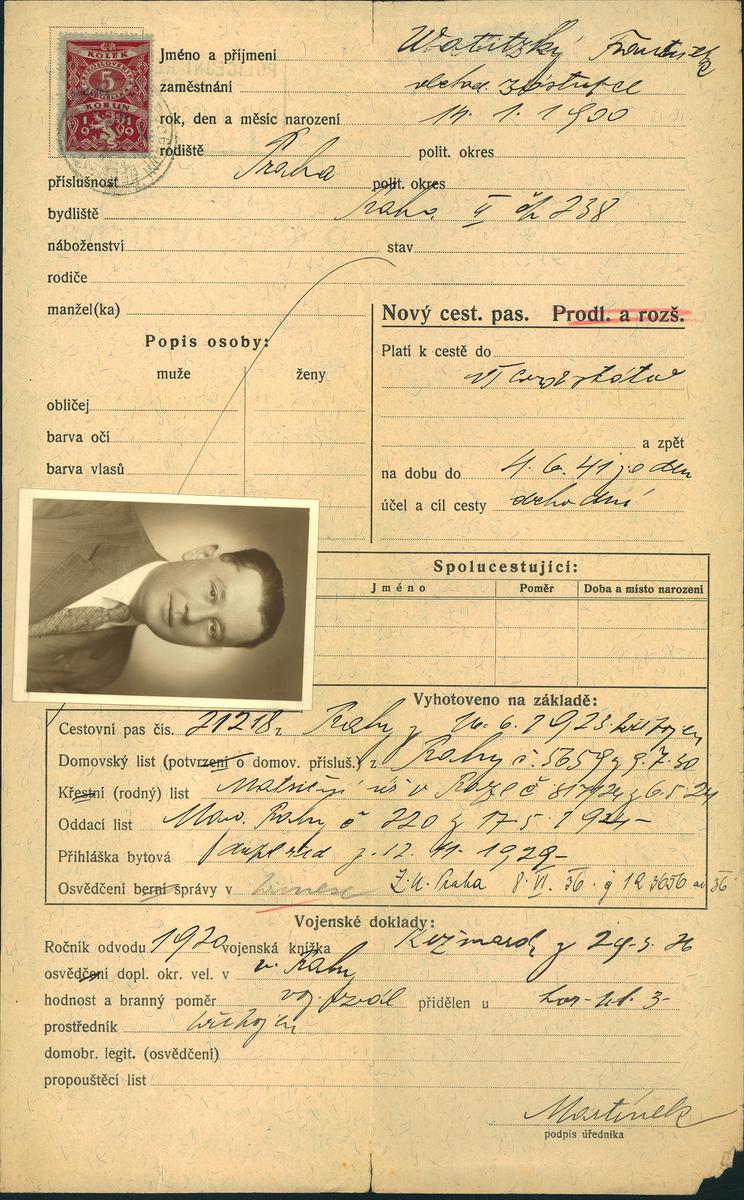 KOLEK
5
KORUN
1919
Jméno a příjmení Watitzký František
zaměstnání obchod. zástupce
rok, den a měsíc narození 14. 1. 1900
rodiště Praha polit. okres
příslušnost polit. okres
bydliště Praha II čp 738
náboženství stav
rodiče
manžel(ka)
Nový cest. pas. Prodl. a rozš.
Popis osoby:
muže ženy
obličej
barva očí
barva vlasů
Platí k cestě do
a zpět
na dobu do 4. 6. 41 jeden
účel a cíl cesty obchodní
Spolucestující:
Jméno Poměr Doba a místo narození
Vyhotoveno na základě:
Cestovní pas čís. 21218 Prahy z 16. 6. 1923
Domovský list (potvrzení o domov. přísluš.) z Prahy č. 5659 z 9. 7. 30
Křestní (rodný) list Matriční úř v Praze č 81724 z 6. 5. 24
Oddací list Prahy č 220 z 17. 5. 1924
Přihláška bytová z. 12. 11. 1929
Osvědčení berní správy v Praha 8. VI. 36
Vojenské doklady:
Ročník odvodu 1920 vojenská knížka Kežmarok z 29. 5. 26
osvědčení dopl. okr. vel. v v Praha
hodnost a branný poměr voj. přidělen u
prostředník
domobr. legit. (osvědčení)
propouštěcí list
Martínek
podpis úředníka